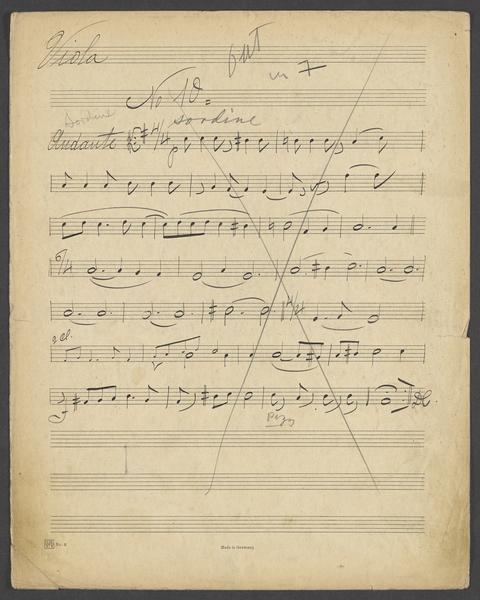 Viola
out
in 7
No 10 =
Sordine
sordine
Andante 4/4
6/4
4/4
2 Cl.
Pizz
No. 8
Made in Germany